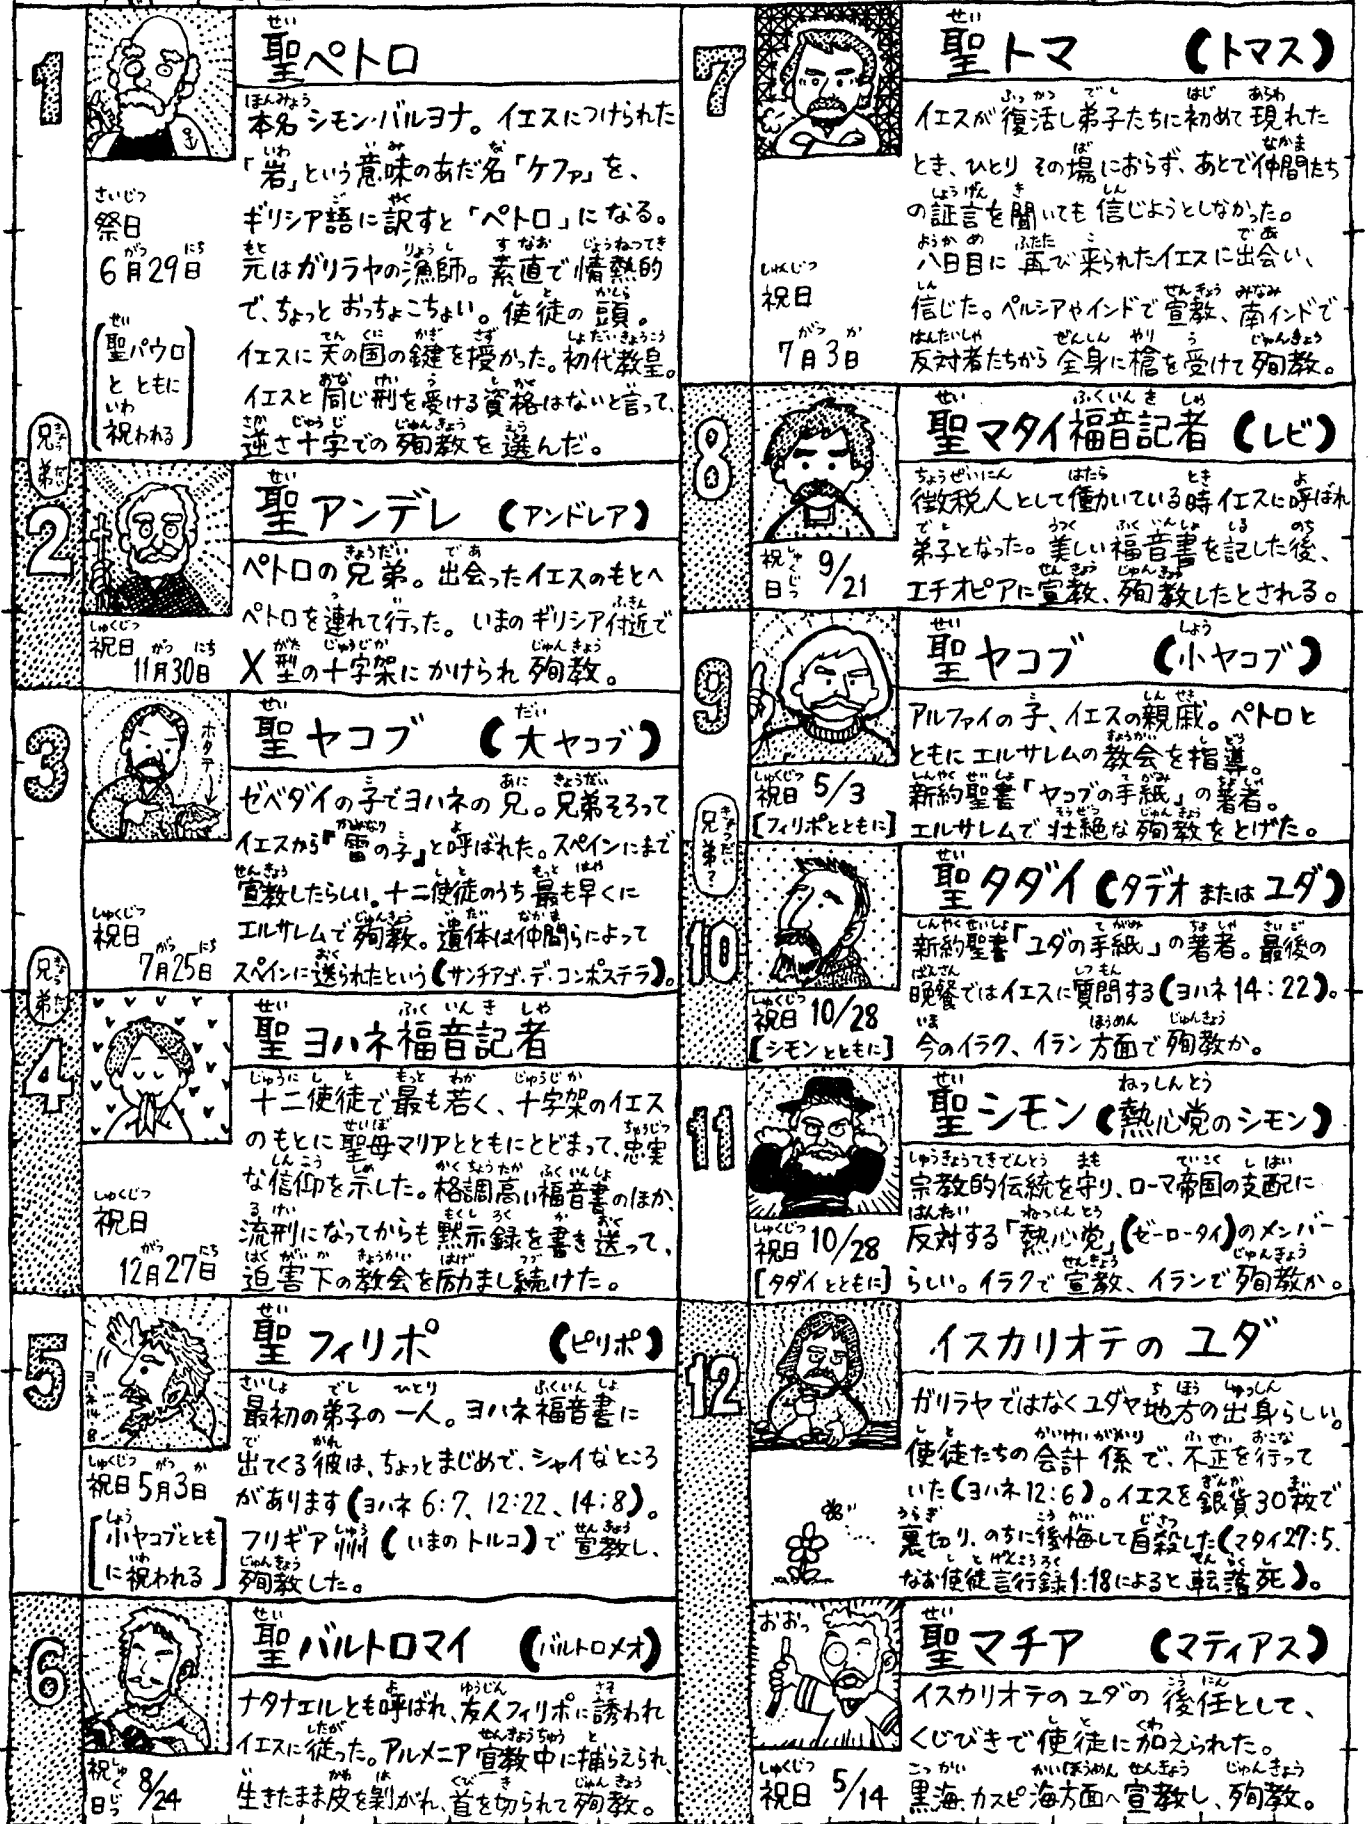 1
聖ペトロ
本名 シモン・バルヨナ。イエスにつけられた
「岩」という意味のあだ名「ケファ」を、
ギリシア語に訳すと「ペトロ」になる。
元はガリラヤの漁師。素直で情熱的
で、ちょっとおっちょこちょい。使徒の頭。
イエスに天の国の鍵を授かった。初代教皇。
イエスと同じ刑を受ける資格はないと言って、
逆さ十字での殉教を選んだ。
祭日
6月29日
[聖パウロ
とともに
祝われる]
兄弟
2
聖アンデレ (アンドレア)
ペトロの兄弟。出会ったイエスのもとへ
ペトロを連れて行った。いまのギリシア付近で
X型の十字架にかけられ殉教。
祝日
11月30日
3
ホタテ→
聖ヤコブ (大ヤコブ)
ゼベダイの子でヨハネの兄。兄弟そろって
イエスから「雷の子」と呼ばれた。スペインにまで
宣教したらしい。十二使徒のうち最も早くに
エルサレムで殉教。遺体は仲間らによって
スペインに送られたという(サンチアゴ・デ・コンポステラ)。
祝日
7月25日
兄弟
4
聖ヨハネ福音記者
十二使徒で最も若く、十字架のイエス
のもとに聖母マリアとともにとどまって、忠実
な信仰を示した。格調高い福音書のほか、
流刑になってからも黙示録を書き送って、
迫害下の教会を励まし続けた。
祝日
12月27日
5
ヨハネ14:8
聖フィリポ (ピリポ)
最初の弟子の一人。ヨハネ福音書に
出てくる彼は、ちょっとまじめで、シャイなところ
があります(ヨハネ6:7、12:22、14:8)。
フリギア州(いまのトルコ)で宣教し、
殉教した。
祝日5月3日
[小ヤコブととも
に祝われる]
6
聖バルトロマイ (バルトロメオ)
ナタナエルとも呼ばれ、友人フィリポに誘われ
イエスに従った。アルメニア宣教中に捕らえられ、
生きたまま皮を剝がれ、首を切られて殉教。
祝日 8/24
7
聖トマ (トマス)
イエスが復活し弟子たちに初めて現れた
とき、ひとりその場におらず、あとで仲間たち
の証言を聞いても信じようとしなかった。
八日目に再び来られたイエスに出会い、
信じた。ペルシアやインドで宣教、南インドで
反対者たちから全身に槍を受けて殉教。
祝日
7月3日
8
聖マタイ福音記者(レビ)
徴税人として働いている時イエスに呼ばれ
弟子となった。美しい福音書を記した後、
エチオピアに宣教、殉教したとされる。
祝日 9/21
9
聖ヤコブ (小ヤコブ)
アルファイの子、イエスの親戚。ペトロと
ともにエルサレムの教会を指導。
新約聖書「ヤコブの手紙」の著者。
エルサレムで壮絶な殉教をとげた。
祝日 5/3
[フィリポとともに]
兄弟?
10
聖タダイ(タデオまたはユダ)
新約聖書「ユダの手紙」の著者。最後の
晩餐ではイエスに質問する(ヨハネ14:22)。
今のイラク、イラン方面で殉教か。
祝日 10/28
[シモンとともに]
11
聖シモン(熱心党のシモン)
宗教的伝統を守り、ローマ帝国の支配に
反対する「熱心党」(ゼーロータイ)のメンバー
らしい。イラクで宣教、イランで殉教か。
祝日 10/28
[タダイとともに]
12
イスカリオテのユダ
ガリラヤではなくユダヤ地方の出身らしい。
使徒たちの会計係で、不正を行って
いた(ヨハネ12:6)。イエスを銀貨30枚で
裏切り、のちに後悔して自殺した(マタイ27:5.
なお使徒言行録1:18によると転落死)。
おおっ
聖マチア (マティアス)
イスカリオテのユダの後任として、
くじびきで使徒に加えられた。
黒海、カスピ海方面へ宣教し、殉教。
祝日 5/14